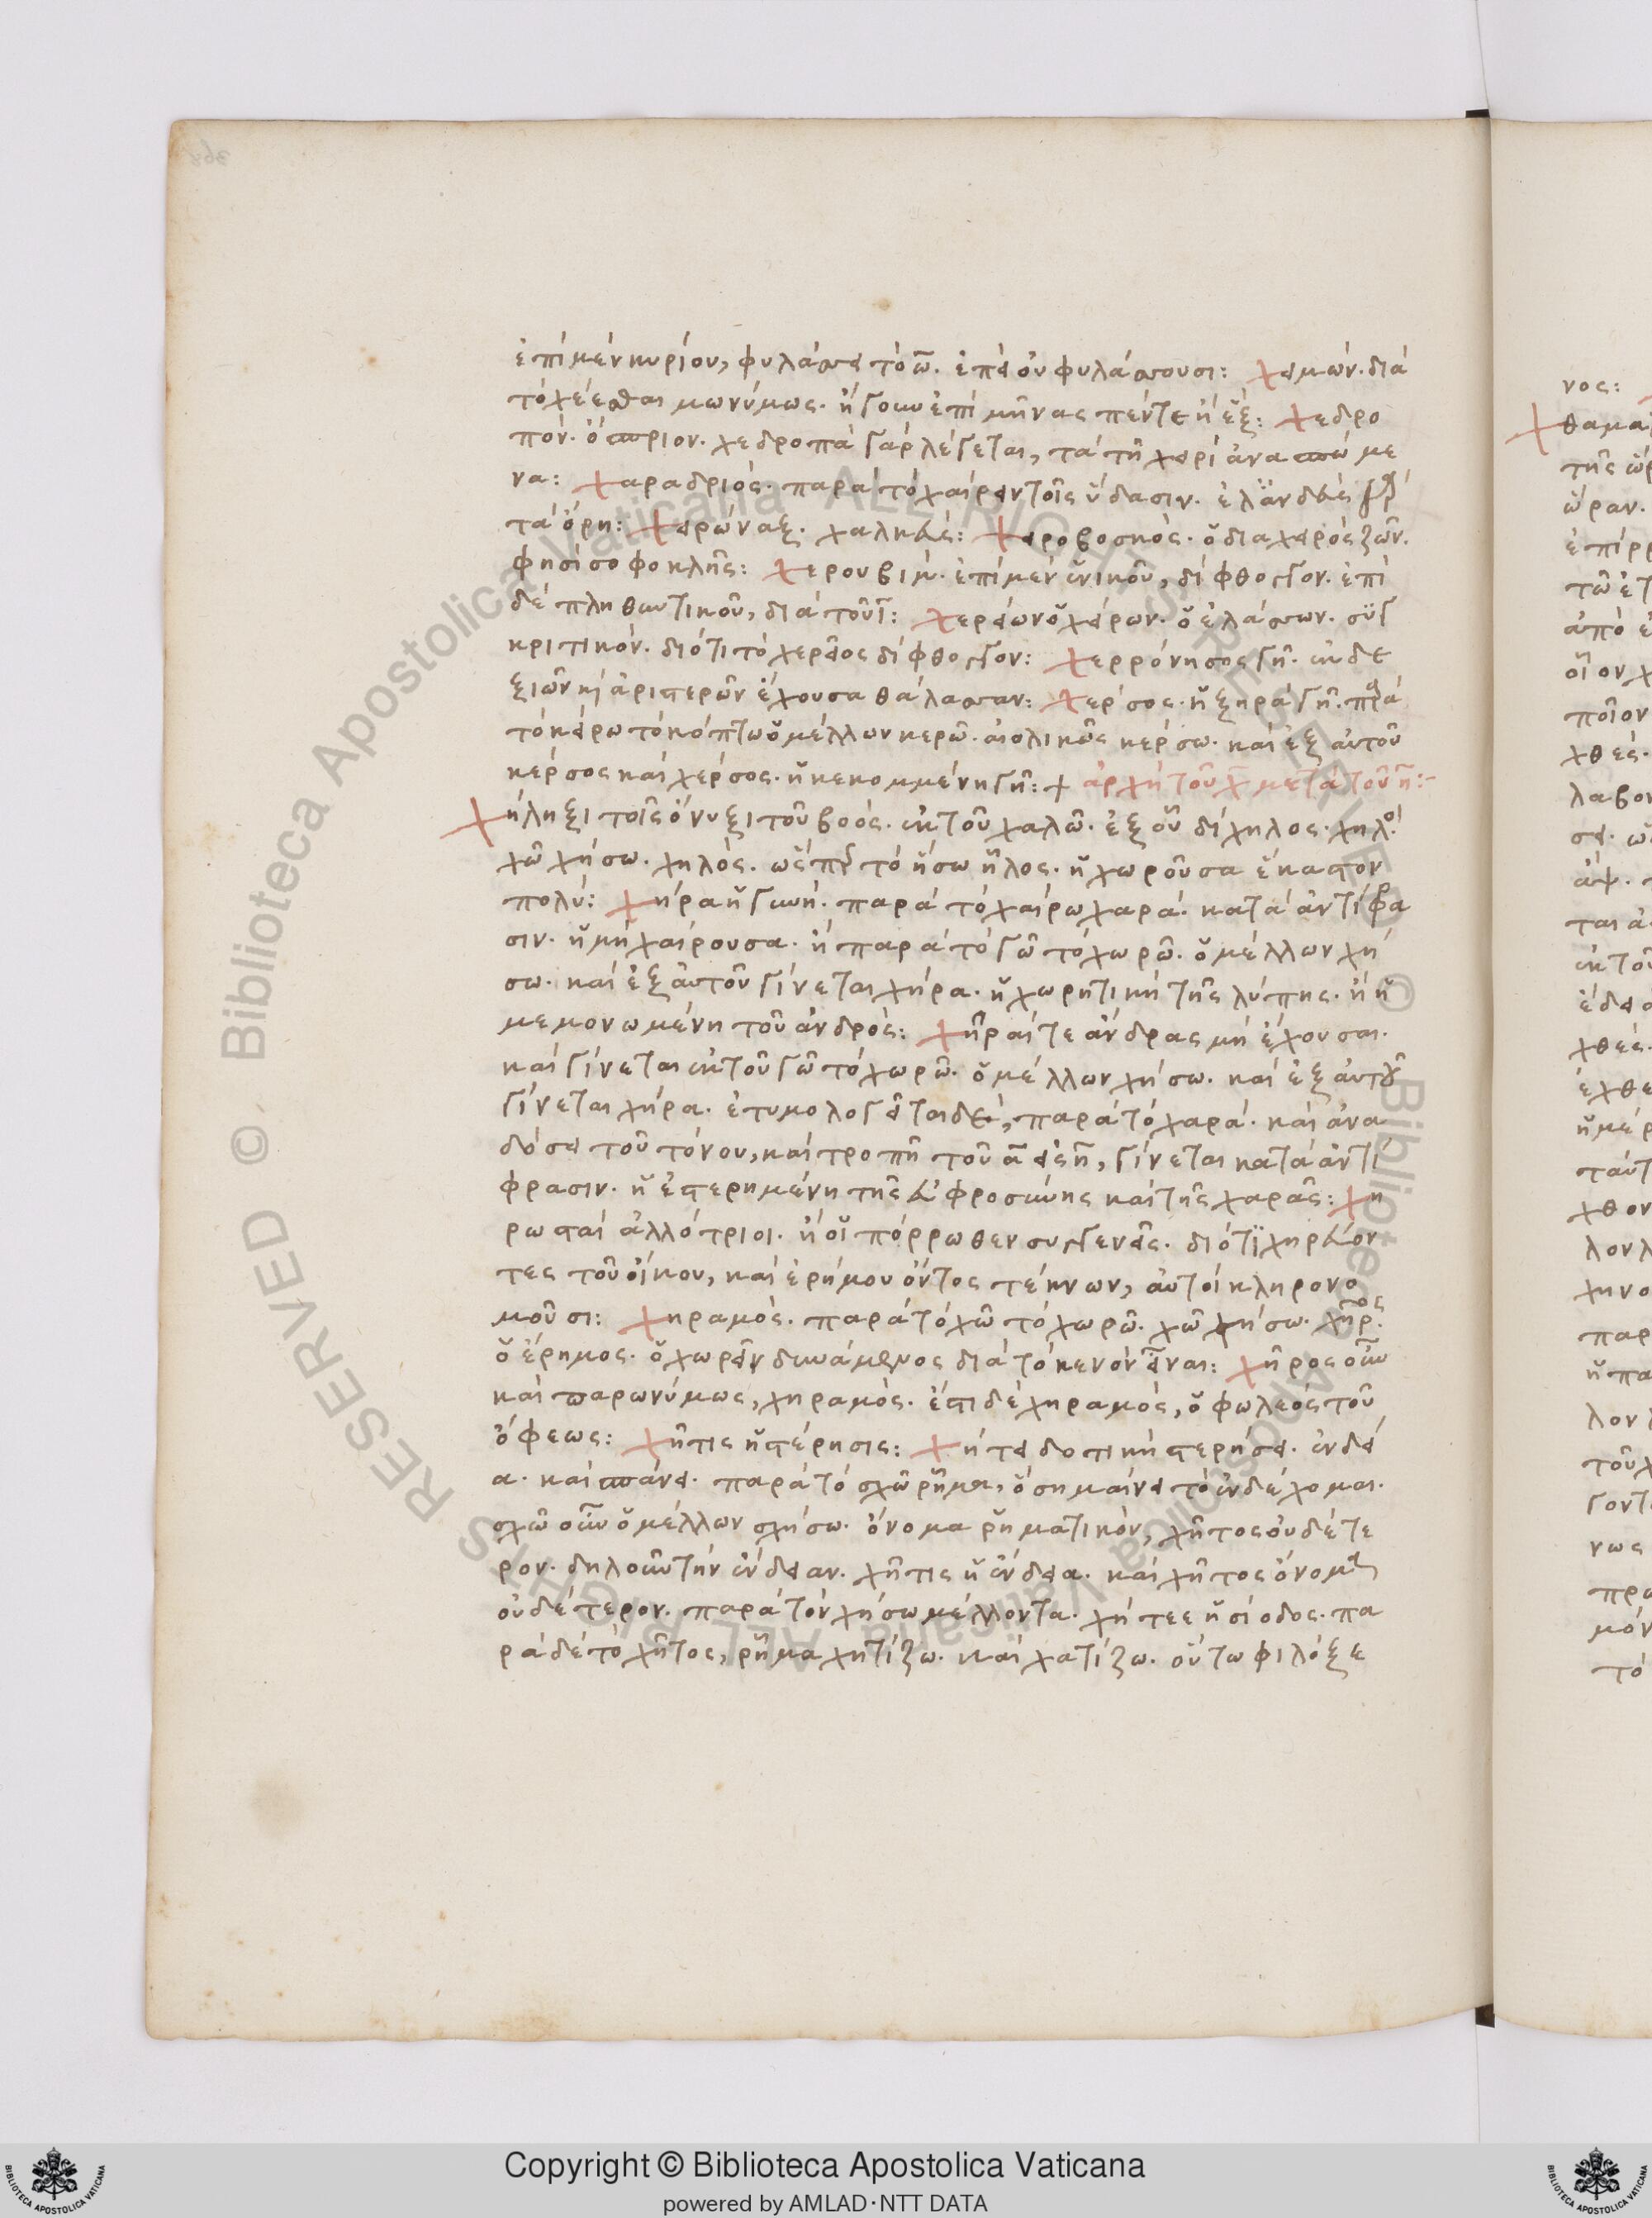 ἐπὶ μὲν κυρίου, φυλάττει τὸ ω̄. ἐπεὶ οὐ φυλάττουσι: Χειμών. διὰ
τὸ χέεσθαι μωνύμως. ἤγουν ἐπὶ μῆνας πέντε ἢ ἕξ: Χεδρο
πόν. ὄσπριον. χεδροπὰ γὰρ λέγεται, τὰ τῇ χειρὶ ἀνασπώμε
να: Χαραδριός. παρὰ τὸ χαίρειν τοῖς ὕδασιν.
τὰ ὄρη: Χειρώναξ. χαλκεύς: Χειροβοσκός. ὁ διαχειρὸς ζῶν.
φησὶ σοφοκλῆς: Χερουβίμ. ἐπὶ μὲν ἑνικοῦ, δίφθογγον. ἐπὶ
δὲ πληθυντικοῦ, διὰ τοῦ ῑ: Χερείων ὁ χείρων. ὁ ἐλάττων. συγ
κριτικόν. διότι τὸ χερεῖος δίφθογγον: Χερρόνησος γῆ. ἐκ δε
ξιῶν κὶ ἀριστερῶν ἔχουσα θάλατταν: Χέρσος. ἡ ξηρὰ γῆ. παρὰ
τὸ κείρω τὸ κόπτω ὁ μέλλων κερῶ. αἰολικῶς κέρσω. καὶ ἐξ αὐτοῦ
κέρσος καὶ χέρσος. ἡ κεκομμένη γῆ: + ἀρχὴ τοῦ χ̄ μετὰ τοῦ η̄:-
Χήληξι τοῖς ὄνυξι τοῦ βοός. ἐκ τοῦ χαλῶ. ἐξ οὗ δίχηλος. χηλοί
χῶ χήσω. χηλός. ὥσπερ τὸ ἥσω ἧλος. ἡ χωροῦσα ἕκαστον
πολύ: Χήρα ἡ γυνή. παρὰ τὸ χαίρω χαρά. κατὰ ἀντίφρα
σιν. ἡ μὴ χαίρουσα. ἢ παρὰ τὸ γῶ τὸ χωρῶ. ὁ μέλλων χή
σω. καὶ ἐξ αὐτοῦ γίνεται χήρα. ἡ χωρητικὴ τῆς λύπης. ἢ ἡ
μεμονωμένη τοῦ ἀνδρός: Χῆραί τε ἄνδρας μὴ ἔχουσαι.
καὶ γίνεται ἐκ τοῦ γῶ τὸ χωρῶ. ὁ μέλλων χήσω. καὶ ἐξ αὐτοῦ
γίνεται χήρα. ἐτυμολογεῖται δὲ, παρὰ τὸ χαρά. καὶ ἀνα
δόσει τοῦ τόνου, καὶ τροπῇ τοῦ ᾱ εἰς η̄, γίνεται κατὰ ἀντί
φρασιν. ἡ ἐστερημένη τῆς εὐφροσύνης καὶ τῆς χαρᾶς: Χη
ρωσταὶ ἀλλότριοι. ἢ οἱ πόρρωθεν συγγενεῖς. διότι χηρεύον
τες τοῦ οἴκου, καὶ ἐρήμου ὄντος τέκνων, αὐτοὶ κληρονο
μοῦσι: Χηραμός. παρὰ τὸ χῶ τὸ χωρῶ. χῶ χήσω. χῆρος.
ὁ ἔρημος. ὁ χωρεῖν δυνάμενος διὰ τὸ κενὸν εἶναι: Χῆρος οὖν
καὶ παρωνύμως, χηραμός. ἔστι δὲ χηραμός, ὁ φωλεὸς τοῦ
ὄφεως: Χῆτις ἡ στέρησις: Χήτει δοτικὴ στερήσει. ἐνδεί
α. καὶ σπάνει. παρὰ τὸ σχῶ ῥῆμα, ὃ σημαίνει τὸ ἐνδέχομαι.
σχῶ οὖν ὁ μέλλων σχήσω. ὄνομα ῥηματικὸν, χῆτος οὐδέτε
ρον. δηλοῦν τὴν ἔνδειαν. χῆτις ἡ ἔνδεια. καὶ χῆτος ὄνομα
οὐδέτερον. παρὰ τὸν χήσω μέλλοντα. χήτεε ἡσίοδος. πα
ρὰ δὲ τὸ χῆτος, ῥῆμα χητίζω. καὶ χατίζω. οὕτω φιλόξε
νος:
Χθαμα
ὥραν.
χθές.
λαβο
χθές.
παρ
νως
μόν
τὸ
© Biblioteca Apostolica Vaticana ALL RIGHTS RESERVED
© Biblioteca Apostolica Vaticana ALL RIGHTS RESERVED
Copyright © Biblioteca Apostolica Vaticana
powered by AMLAD·NTT DATA
BIBLIOTECA APOSTOLICA VATICANA
BIBLIOTECA APOSTOLICA VATICANA